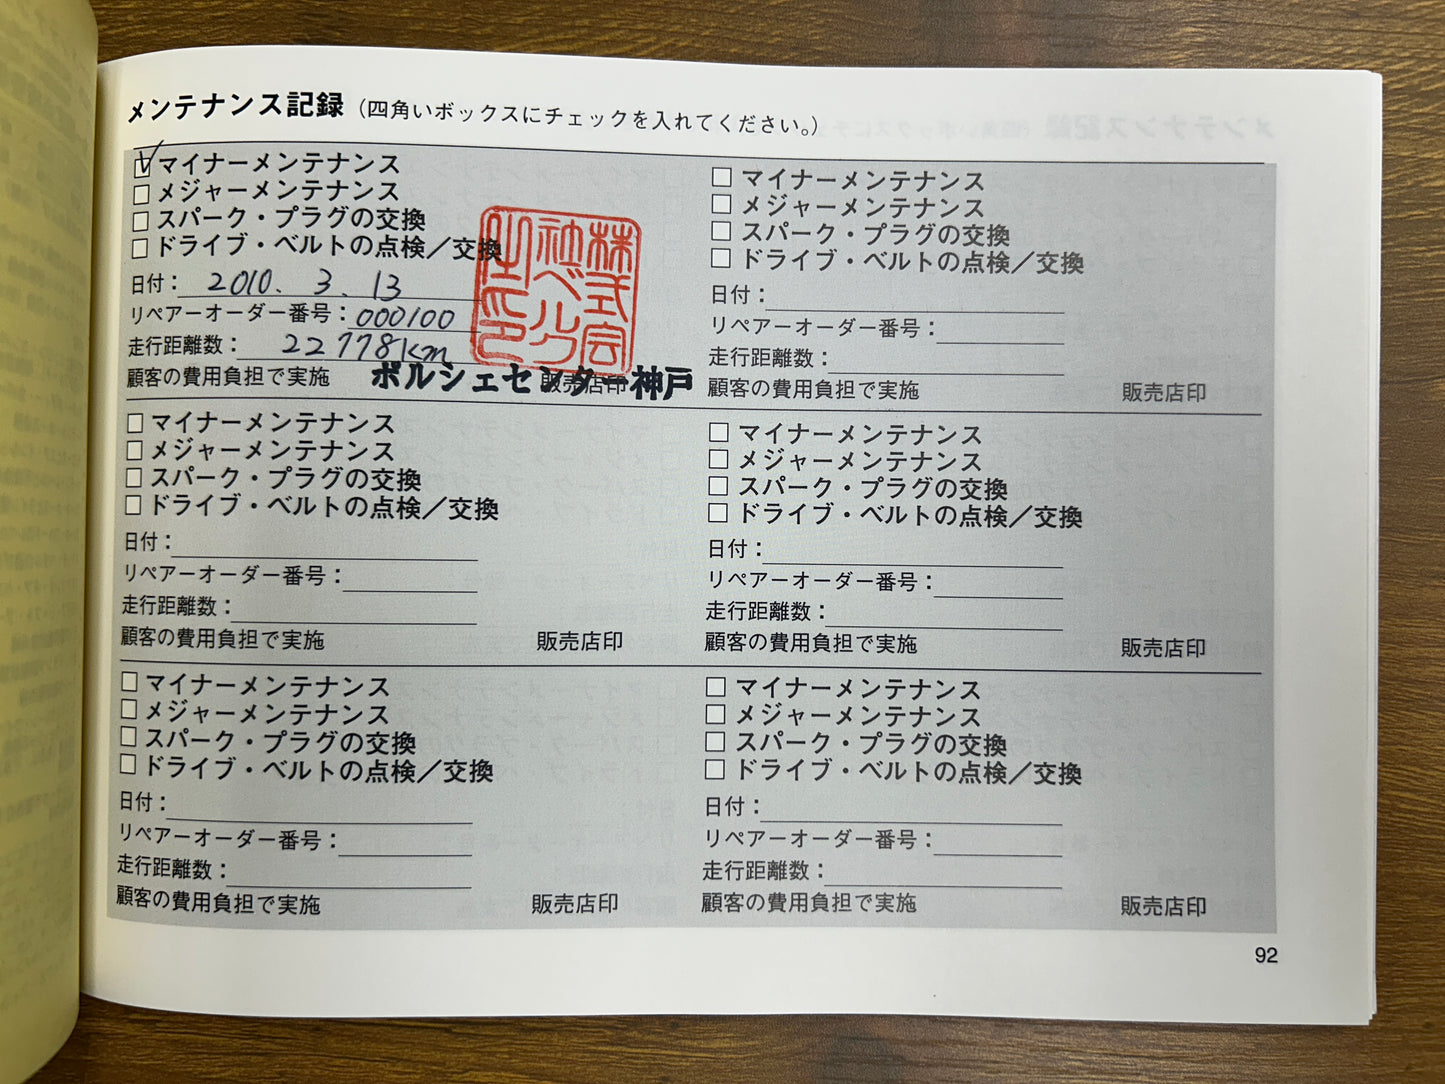 メンテナンス記録（四角いボックスにチェックを入れてください。）
マイナーメンテナンス
メジャーメンテナンス
スパーク・プラグの交換
ドライブ・ベルトの点検／交換
日付：2010. 3. 13
リペアーオーダー番号：000100
走行距離数：22778km
顧客の費用負担で実施
販売店印
ポルシェセンター神戸
株式会
社ベルグ
之印
マイナーメンテナンス
メジャーメンテナンス
スパーク・プラグの交換
ドライブ・ベルトの点検／交換
日付：
リペアーオーダー番号：
走行距離数：
顧客の費用負担で実施
販売店印
マイナーメンテナンス
メジャーメンテナンス
スパーク・プラグの交換
ドライブ・ベルトの点検／交換
日付：
リペアーオーダー番号：
走行距離数：
顧客の費用負担で実施
販売店印
マイナーメンテナンス
メジャーメンテナンス
スパーク・プラグの交換
ドライブ・ベルトの点検／交換
日付：
リペアーオーダー番号：
走行距離数：
顧客の費用負担で実施
販売店印
マイナーメンテナンス
メジャーメンテナンス
スパーク・プラグの交換
ドライブ・ベルトの点検／交換
日付：
リペアーオーダー番号：
走行距離数：
顧客の費用負担で実施
販売店印
マイナーメンテナンス
メジャーメンテナンス
スパーク・プラグの交換
ドライブ・ベルトの点検／交換
日付：
リペアーオーダー番号：
走行距離数：
顧客の費用負担で実施
販売店印
92